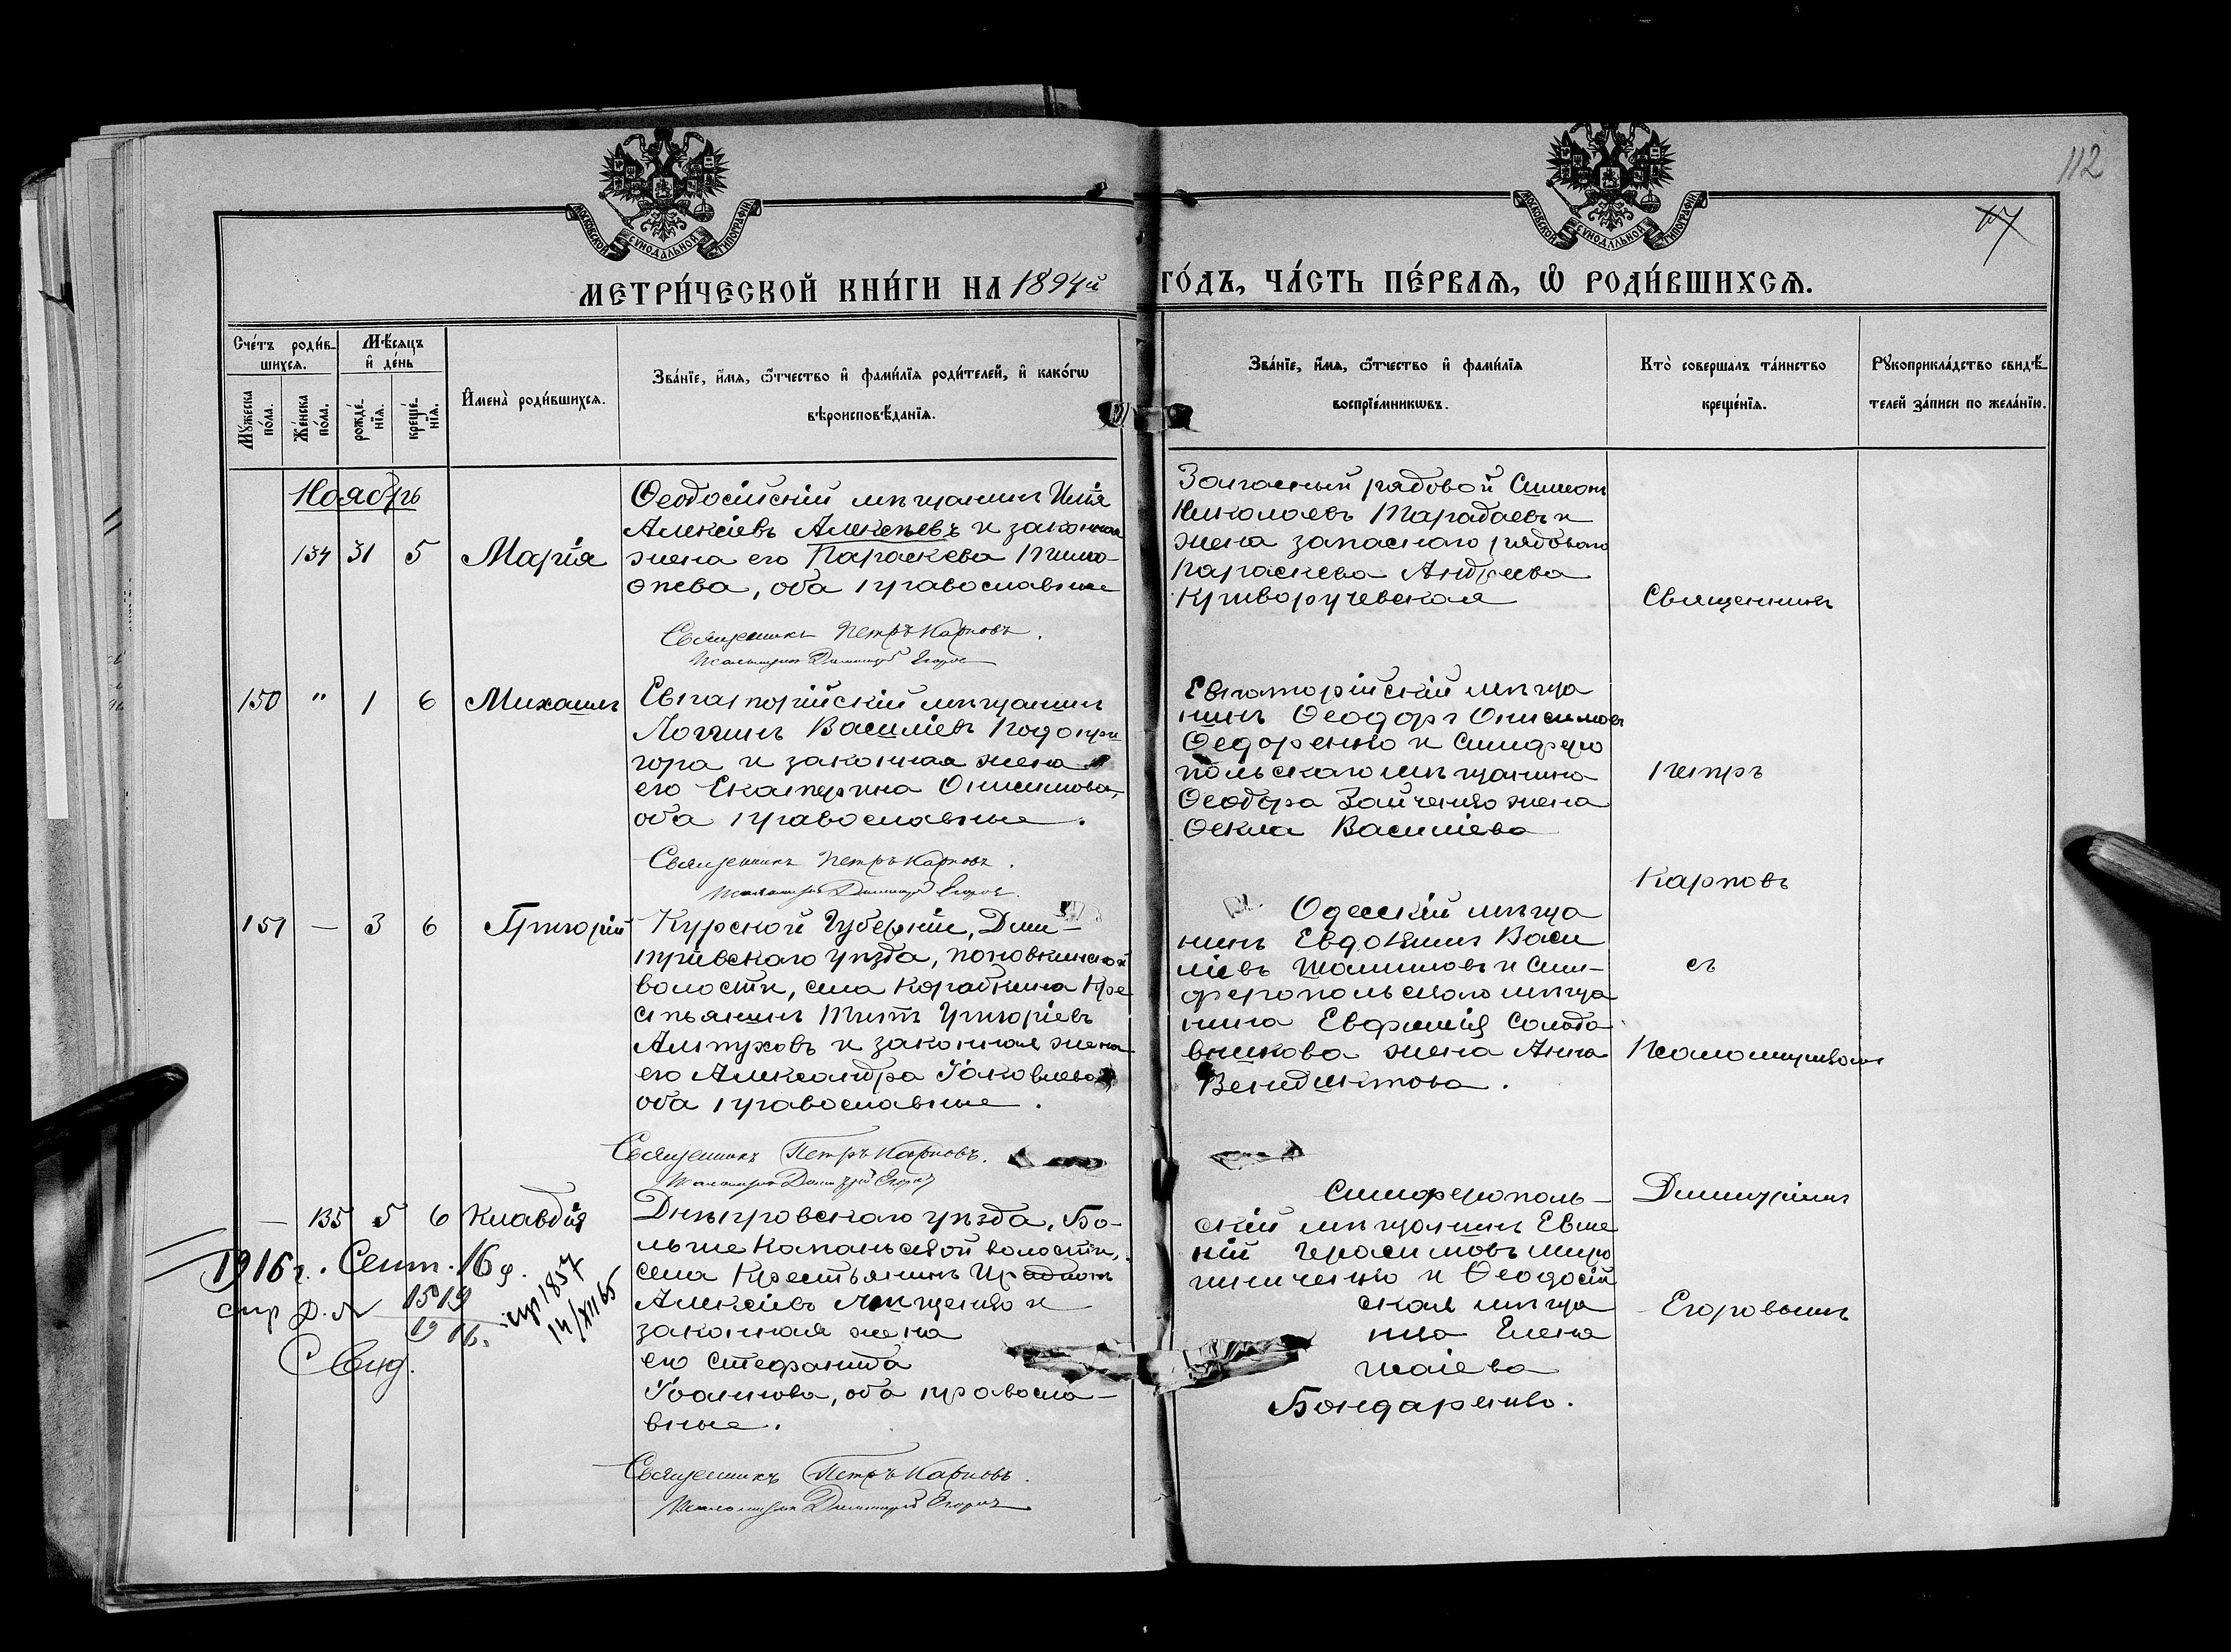 112
17
МОСКОВСКОЙ СУНОДАЛЬНОЙ ТИПОГРАФІИ
МОСКОВСКОЙ СУНОДАЛЬНОЙ ТИПОГРАФІИ
МЕТРИ́ЧЕСКОЙ КНИ́ГИ НА 1894й ГО́ДЪ, ЧА́СТЬ ПЕ́РВАѦ, Ѿ РОДИ́ВШИХСѦ.
Сче́тъ роди́в-
шихсѧ.
Мѣ́сѧцъ
и҆ де́нь
Мꙋ́жеска по́ла.
Же́нска по́ла.
рожде́-
нїѧ.
креще́-
нїѧ.
И҆мена̀ роди́вшихсѧ.
Зва́нїе, и҆́мѧ, ѻ҆́тчество и҆ фами́лїѧ роди́телей, и҆ како́гѡ
вѣроисповѣ́данїѧ.
Зва́нїе, и҆́мѧ, ѻ҆́тчество и҆ фами́лїѧ
воспрїе́мникѡвъ.
Кто̀ совершалъ та́инство
креще́нїѧ.
Рꙋкоприкла́дство свидѣ́-
телей за́писи по жела́нїю.
Ноябрь
134 31 5 Марія
Ѳеодосійскій мѣщанинъ Илія
Алексіевъ Алексѣевъ и законная
жена его Параскева Тимо-
ѳеева, оба православные
Священникъ Петръ Карповъ.
Псаломщикъ Димитрій Егоровъ
Запасный рядовой Симеонъ
Николаевъ Тарадаевъ и
жена запаснаго рядоваго
Параскева Андреева
Криворучевская
150 " 1 6 Михаилъ
Евпаторійскій мѣщанинъ
Логгинъ Василіевъ Подопри
гора и законная жена
его Екатерина Онисимова,
оба православные.
Священникъ Петръ Карповъ.
Псаломщикъ Димитрій Егоровъ.
Евпаторійскій мѣща
нинъ Ѳеодоръ Онисимовъ
Ѳедоренко и Симферо
польскаго мѣщанина
Ѳеодора Зайченко жена
Ѳекла Василіева
151 — 3 6 Григорій
Курской Губерніи, Дми-
тріевскаго уѣзда, Поповкинской
волости, села Коробкина кре
стьянинъ Титъ Григоріевъ
Алтуховъ и законная жена
его Александра Іаковлева,
оба православные.
Священникъ Петръ Карповъ.
Псаломщикъ Димитрій Егоровъ
Одесскій мѣща
нинъ Евдокимъ Васи
ліевъ Шалимовъ и Сим-
феропольскаго мѣща
нина Евфимія Солода
вникова жена Анна
Венедиктова.
— 135 5 6 Клавдія
Днѣпровскаго уѣзда, Бо-
льше Копаньской волости,
села крестьянинъ
Алексіевъ и
законная жена
его Стефанида
Іоаннова, оба правосла-
вные.
Священникъ Петръ Карповъ.
Псаломщикъ Димитрій Егоровъ
Симферополь-
скій мѣщанинъ Евге
ній Герасимовъ Миро
шниченко и Ѳеодосій
ская мѣща
нка Елена
Исаіева
Бондаренко.
Священникъ
Петръ
Карповъ
съ
Псаломщикомъ
Димитріемъ
Егоровымъ
1916г. Сент. 16 д.
1519
1916.
спр 1857
14/XII 65
Свид.